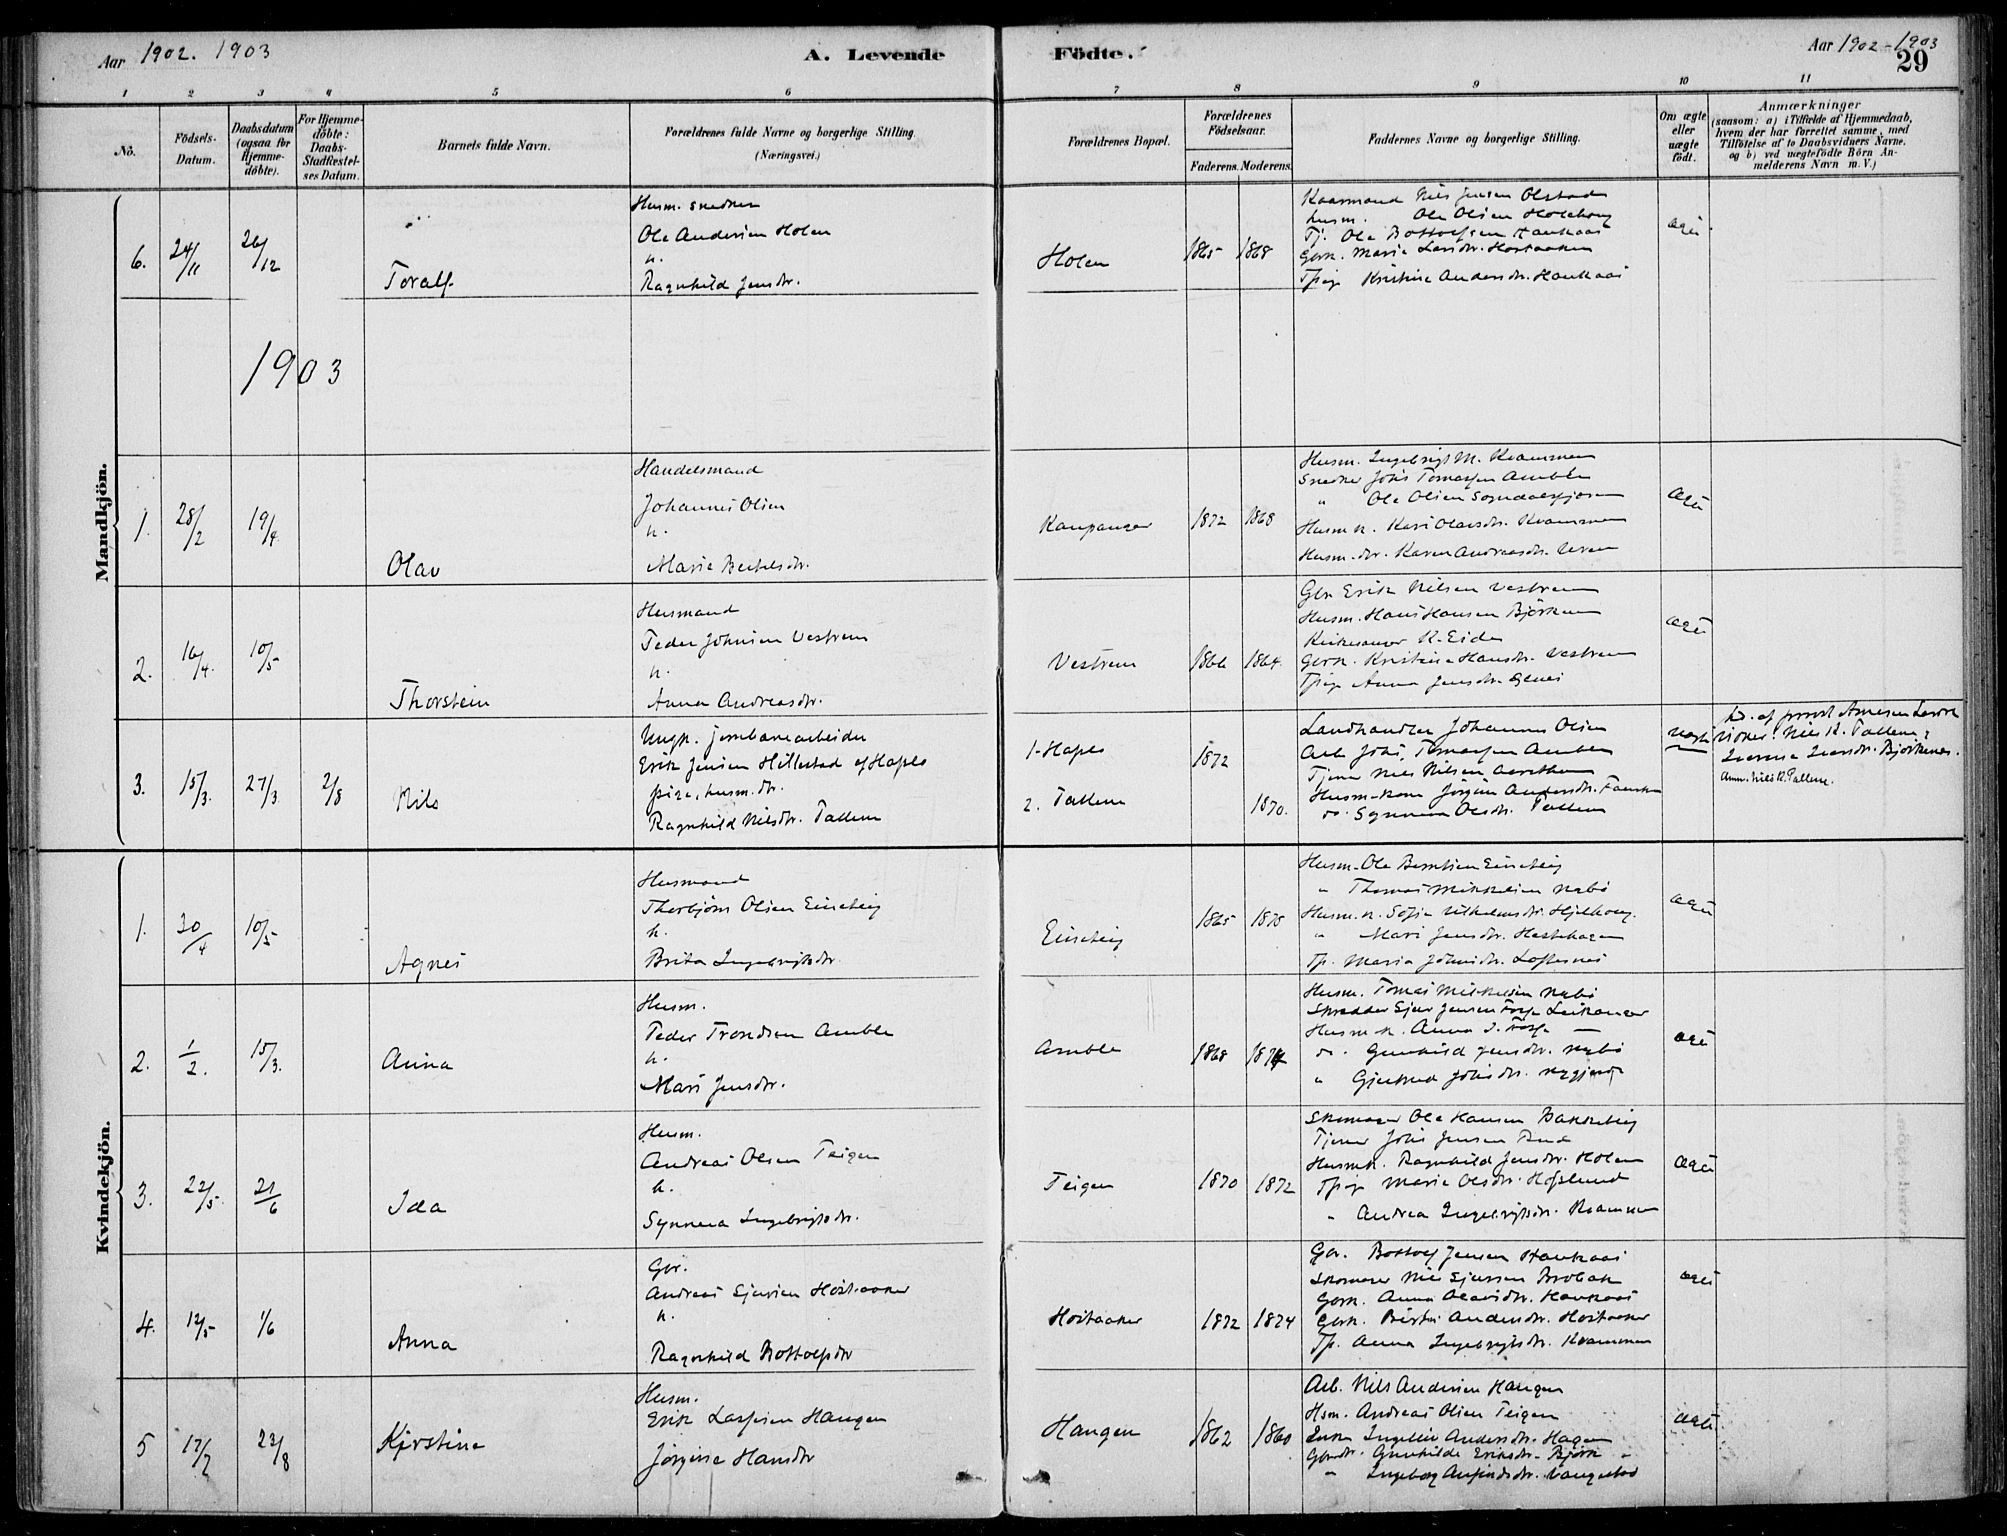 Aar 1902. 1903
A. Levende Födte.
Aar 1902-1903
29
1 2 3 4 5 6 7 8 9 10 11
No.
Födsels-Datum.
Daabsdatum (ogsaa for Hjemme-döbte).
For Hjemme-döbte: Daabs-Stadfæstel-ses Datum.
Barnets fulde Navn.
Forældrenes fulde Navne og borgerlige Stilling.
(Næringsvei.)
Forældrenes Bopæl.
Forældrenes Födselsaar.
Faderens. Moderens.
Faddernes Navne og borgerlige Stilling.
Om ægte eller uægte födt.
Anmærkninger
(saasom: a) i Tilfælde af Hjemmedaab,
hvem der har forrettet samme, med
Tilföielse af to Daabsvidners Navne,
og b) ved uægtefödte Börn An-
melderens Navn m. V.)
Mandkjön.
6. 24/11 26/12
Toralf
Husm. snedker
Ole Andersen Holen
h.
Ragnhild Jensdr.
Holen 1865 1868
Kaarmand Nils Jensen Olstad
husm. Ole Olsen
Tj. Ole Bottolfsen Haukaas
Gbrk. Marie Larsdr.
Tpige Kristine Andersdr. Haukaas
ægte
1903
1. 28/2 19/4
Olav
Handelsmand
Johannes Olsen
h.
Marie Bertelsdr.
Kaupanger 1872 1868
Husm. Ingebrigt M. Kvammen
Snedker Johs Tomassen Amble
" Ole Olsen
Husm.k. Kari Olavsdr. Kvammen
Husm.dr. Karen Andreasdr.
ægte
2. 16/4 10/5
Thorstein
Husmand
Peder Johnsen Vestrem
h.
Anna Andreasdr.
Vestrem 1866 1864
Gbr Erik Nilsen Vestrem
Husm. Hans Hansen Björkum
Kirkesanger K. Eide
Gbrk. Kristine Hansdr. Vestrem
Tpige Anna Jensdr.
ægte
3. 15/3. 27/3 2/8
Nils
Ungk. jernbanearbeider
Erik Jensen Hillestad af Hafslo
pige, husm.dr.
Ragnhild Nilsdr. Tallem
1. Hafslo 1872
2. Tallem 1870.
Landhandler Johannes Olsen
Arb. Johs. Tomassen Amble
Tjener Nils Nilsen
Husm-kone Jørgine Andersdr.
do. Synneva Olsdr. Tallem
uægte
hd. af provst
vidner: Nils K. Tallem &
Anm. Nils K. Tallem.
Kvindekjön.
1. 30/4 10/5
Agnes
Husmand
Thorbjörn Olsen
h.
Brita Ingebrigtsdr.
1865 1875
Husm. Ole Berntsen
" Thomas Mikkelsen Nybö
Husm.k. Sofie Vilhelmsdr.
" Mari Jensdr. Hestehagen
Tp. Maria Johnsdr. Loftesnes
ægte
2. 1/2. 15/3.
Anna
Husm.
Peder Trondsen Amble
h.
Mari Jensdr.
Amble 1868 1874
Husm. Tomas Mikkelsen Nybö
Skrædder Sjur Jensen
Husm.k. Anna J.
do. Gunhild Jensdr. Nybö
" Gjertrud Johsdr.
ægte
3. 22/5. 21/6
Ida
Husm.
Andreas Olsen Teigen
h.
Synneva Ingebrigtsdr.
Teigen 1870 1872
Skomager Ole Hansen
Tjener Johs Jensen
Husm.k. Ragnhild Jensdr. Holen
Tpige Marie Olsdr.
" Andrea Ingebrigtsdr. Kvammen
ægte
4. 12/5 1/6
Anna
Gbr.
Andreas Sjursen Hostaaker
h.
Ragnhild Bottolfsdr
Hostaaker 1872 1874
Gbr. Bottolf Jensen Haukaas
Skomager Nils Sjursen
Gbrk. Anna Olavsdr. Haukaas
Gbrk. Andersdr. Hostaaker
Tp. Anna Ingebrigtsdr. Kvammen
ægte
5 17/7 23/8
Kjerstine
Husm.
Erik Lassesen Haugen
Jörgine Hansdr
Haugen 1862 1860
Arb. Nils Andersen Haugen
Hsm. Andreas Olsen Teigen
Andersdr. Hagen
Gbrdr. Gunhilde Eriksdr. Björk
" Ingeborg
ægte